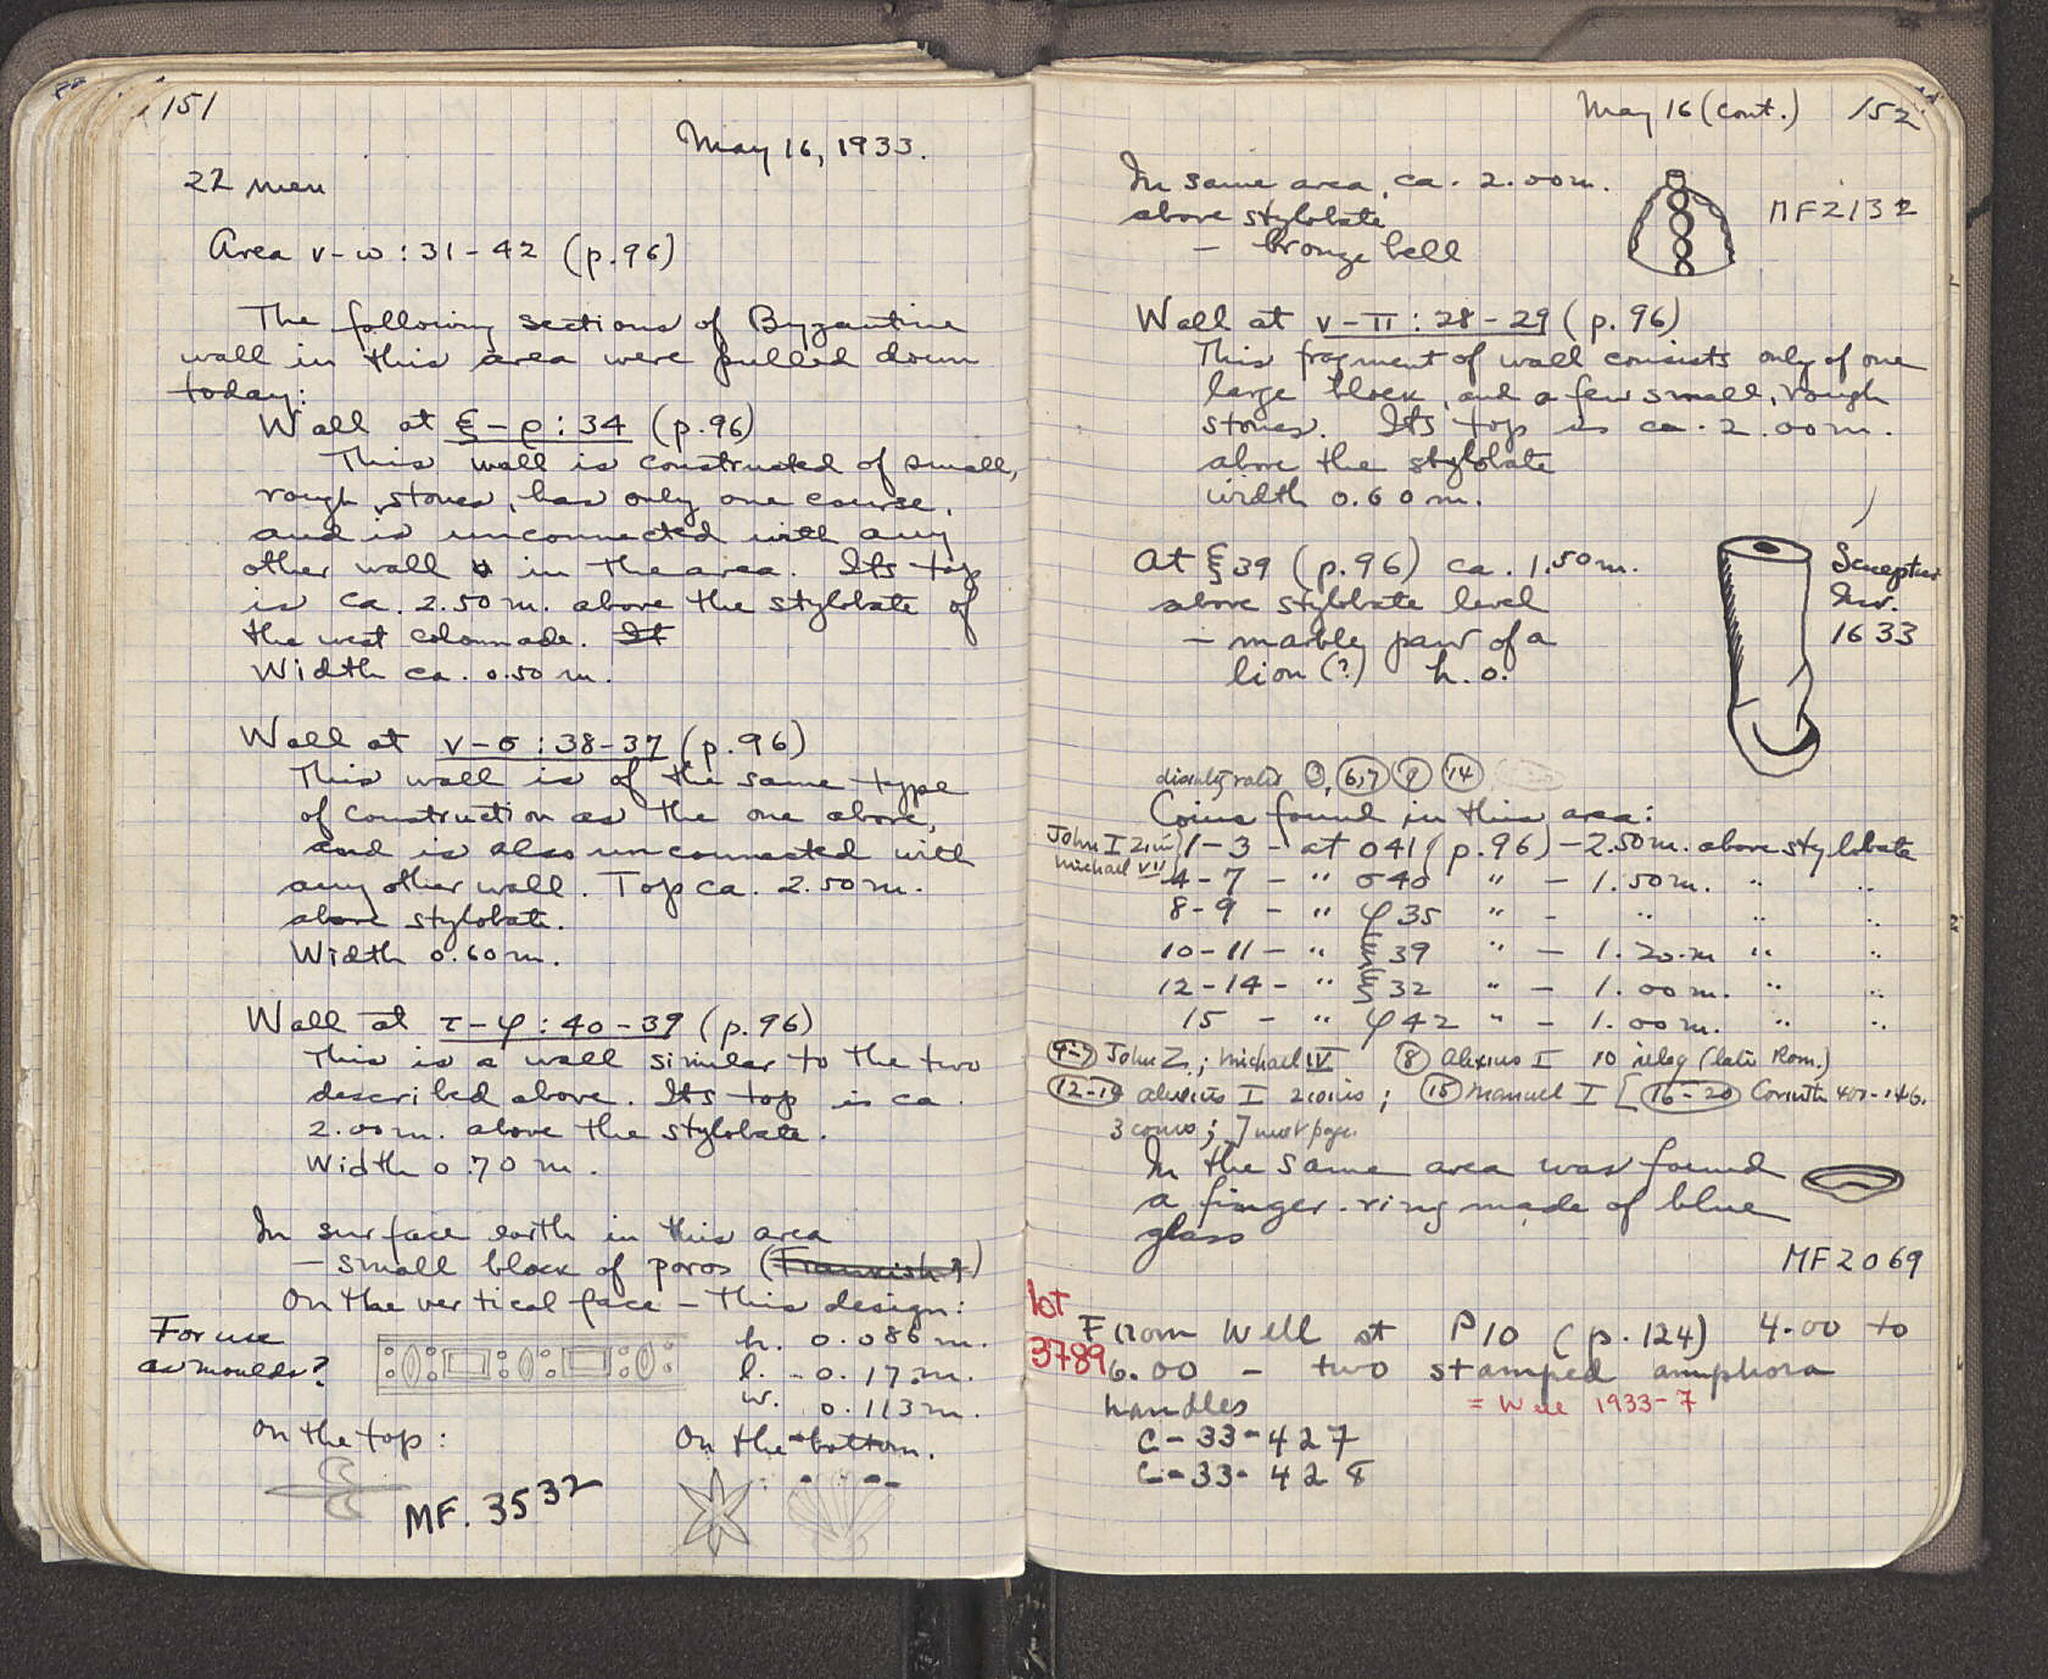 151
May 16, 1933.
22 men
Area ν-ω : 31-42 (p.96)
The following sections of Byzantine
wall in this area were pulled down
today:
Wall at ξ-ρ : 34 (p.96)
This wall is constructed of small,
rough stones, has only one course,
and is unconnected with any
other wall in the area. Its top
is ca. 2.50 m. above the stylobate of
the west colonnade. It
Width ca. 0.50 m.
Wall at ν-σ : 38-37 (p.96)
This wall is of the same type
of construction as the one above,
and is also unconnected with
any other wall. Top ca. 2.50 m.
above stylobate.
Width 0.60 m.
Wall at τ-φ : 40-39 (p.96)
This is a wall similar to the two
described above. Its top is ca.
2.00 m. above the stylobate.
Width 0.70 m.
In surface earth in this area
- small block of poros (Frankish?)
On the vertical face - this design:
For use
as moulds?
h. 0.086 m.
l. - 0.17 m.
w. 0.113 m.
On the top:
On the bottom.
MF. 3532
May 16 (cont.) 152
In same area, ca. 2.00 m.
above stylobate
- bronze bell
MF2132
Wall at ν-π : 28-29 (p. 96)
This fragment of wall consists only of one
large block, and a few small, rough
stones. Its top is ca. 2.00 m.
above the stylobate
width 0.60 m.
At ξ39 (p.96) ca. 1.50 m.
above stylobate level
- marble paw of a
lion (?) h. o.
Sculpture
Inv.
1633
6,7 14
Coins found in this area:
John I Zim
Michael VII
1-3 - at ο41 (p.96) - 2.50 m. above stylobate
4-7 - " σ40 " - 1.50 m. " "
8-9 - " φ35 " - " " "
10-11 - " ξ39 " - 1.20 m " "
12-14 - " ξ32 " - 1.00 m. " "
15 - " φ42 " - 1.00 m. " "
John Z.; Michael IV 8 Alexius I 10 illeg (late Rom.)
12-14 Alexius I 2 coins; 15 Manuel I [16-20 Corinth 400-146.
3 coins; ] next page.
In the same area was found
a finger-ring made of blue
glass
MF2069
lot
3789
From Well at P10 (p.124) 4.00 to
6.00 - two stamped amphora
handles
= Well 1933-7
C-33-427
C-33-428